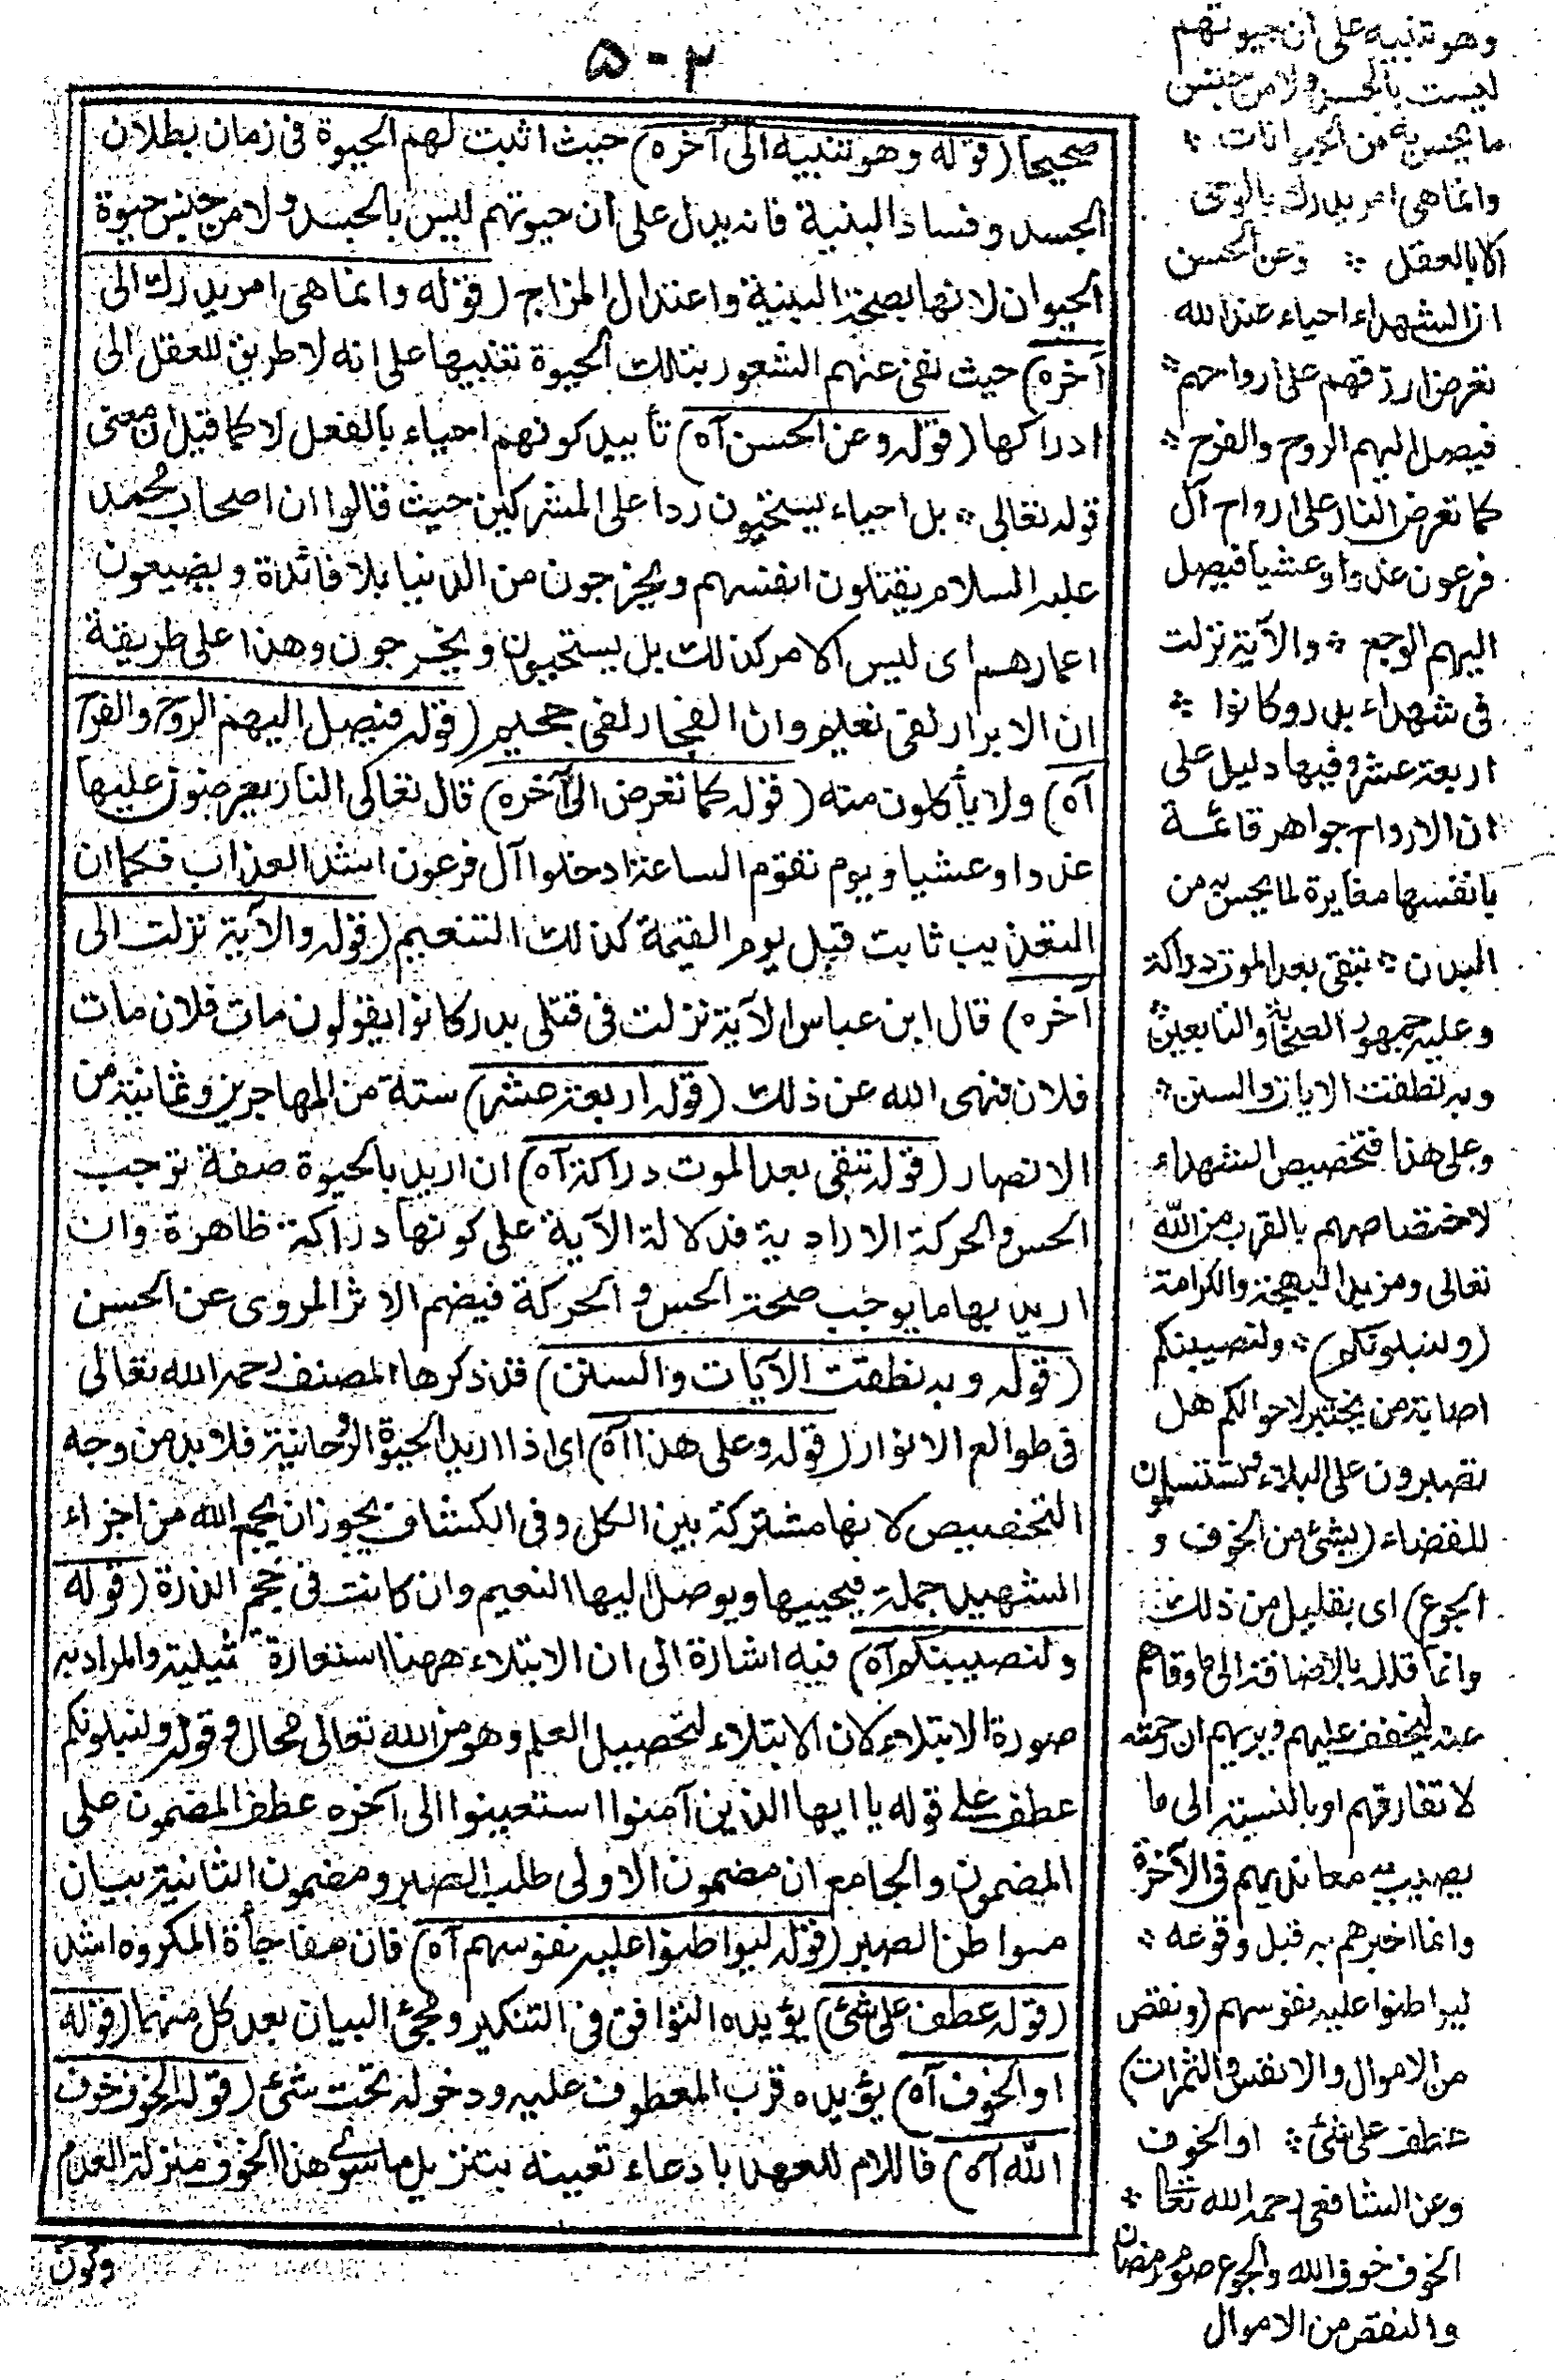 ٥٠٢
صحيحا (قوله وهو تنبيه الى آخره) حيث اثبت لهم الحيوة فى زمان بطلان
الجسد وفساد البنية فانه يدل على ان حيوتهم ليس بالجسد ولا من جنس حيوة
الحيوان لانها بصحة البنية واعتدال المزاج (قوله وانما هى امر يدرك الى
آخره) حيث نفى عنهم الشعور بتلك الحيوة تنبيها على انه لا طريق للعقل الى
ادراكها (قوله وعن الحسن آه) تأييد كونهم احياء بالفعل لا كما قيل ان معنى
قوله تعالى * بل احياء يستحيون ردا على المشركين حيث قالوا ان اصحاب محمد
عليه السلام يقتلون انفسهم ويخرجون من الدنيا بلا فائدة ويضيعون
اعمارهم اى ليس الامر كذلك بل يستحيون ويخرجون وهذا على طريقة
ان الابرار لفى نعيم وان الفجار لفى جحيم (قوله فيصل اليهم الروح والفرح
آه) ولا يأكلون منه (قوله كما تعرض الى آخره) قال تعالى النار يعرضون عليها
غدوا وعشيا ويوم تقوم الساعة ادخلوا آل فرعون اشد العذاب فكما ان
التعذيب ثابت قبل يوم القيمة كذلك التنعيم (قوله والآية نزلت الى
آخره) قال ابن عباس الآية نزلت فى قتلى بدر كانوا يقولون مات فلان مات
فلان فنهى الله عن ذلك (قوله اربعة عشر) ستة من المهاجرين وثمانية من
الانصار (قوله تبقى بعد الموت دراكة آه) ان اريد بالحيوة صفة توجب
الحس والحركة الارادية فدلالة الآية على كونها دراكة ظاهرة وان
اريد بها ما يوجب صحة الحس والحركة فيضم الاثر المروى عن الحسن
(قوله وبه نطقت الآيات والسنن) قد ذكرها المصنف رحمه الله تعالى
فى طوالع الانوار (قوله وعلى هذا آه) اى اذا اريد الحيوة الروحانية فلا بد من وجه
التخصيص لانها مشتركة بين الكل وفى الكشاف يجوز ان يجمع الله من اجزاء
الشهيد جملة فيحييها ويوصل اليها النعيم وان كانت فى حجم الذرة (قوله
ولنصيبنكم آه) فيه اشارة الى ان الابتلاء ههنا استعارة تمثيلية والمراد به
صورة الابتلاء لان الابتلاء لتحصيل العلم وهو من الله تعالى محال وقوله ولنبلونكم
عطف على قوله يا ايها الذين آمنوا استعينوا الى آخره عطف المضمون على
المضمون والجامع ان مضمون الاولى طلب الصبر ومضمون الثانية بيان
مواطن الصبر (قوله ليواطنوا عليه نفوسهم آه) فان مفاجأة المكروه اشد
(قوله عطف على شئ) يؤيده التوافق فى التنكير ومجئ البيان بعد كل منهما (قوله
او الخوف آه) يؤيده قرب المعطوف عليه ودخوله تحت شئ (قوله الخوف خوف
الله آه) فاللام للعهد بادعاء تعينه بتنزيل ما سوى هذا الخوف منزلة العدم
وكون
وهو تنبيه على ان حيوتهم
ليست بالجسد ولا من جنس
ما يحس به من الحيوانات *
وانما هى امر يدرك بالوحى
لا بالعقل * وعن الحسن
ان الشهداء احياء عند الله
تعرض ارزاقهم على ارواحهم *
فيصل اليهم الروح والفرح *
كما تعرض النار على ارواح آل
فرعون غدوا وعشيا فيصل
اليهم الوجع * والآية نزلت
فى شهداء بدر وكانوا *
اربعة عشر وفيها دليل على
ان الارواح جواهر قائمة
بانفسها مغايرة لما يحس به من
البدن * تبقى بعد الموت دراكة
وعليه جمهور الصحابة والتابعين *
وبه نطقت الايات والسنن *
وعلى هذا فتخصيص الشهداء
لاختصاصهم بالقرب من الله
تعالى ومزيد البهجة والكرامة
(ولنبلونكم) * ولنصيبنكم
اصابة من يختبر لاحوالكم هل
تصبرون على البلاء وتستسلمون
للقضاء (بشئ من الخوف و
الجوع) اى بقليل من ذلك
وانما قلله بالاضافة الى ما وقاهم
عنه ليخفف عليهم ويريهم ان رحمته
لا تفارقهم او بالنسبة الى ما
يصيب به معانديهم فى الآخرة
وانما اخبرهم به قبل وقوعه *
ليواطنوا عليه نفوسهم (ونقص
من الاموال والانفس والثمرات)
عطف على شئ * او الخوف
وعن الشافعى رحمه الله تعا *
الخوف خوف الله والجوع صوم رمضان
والنقص من الاموال